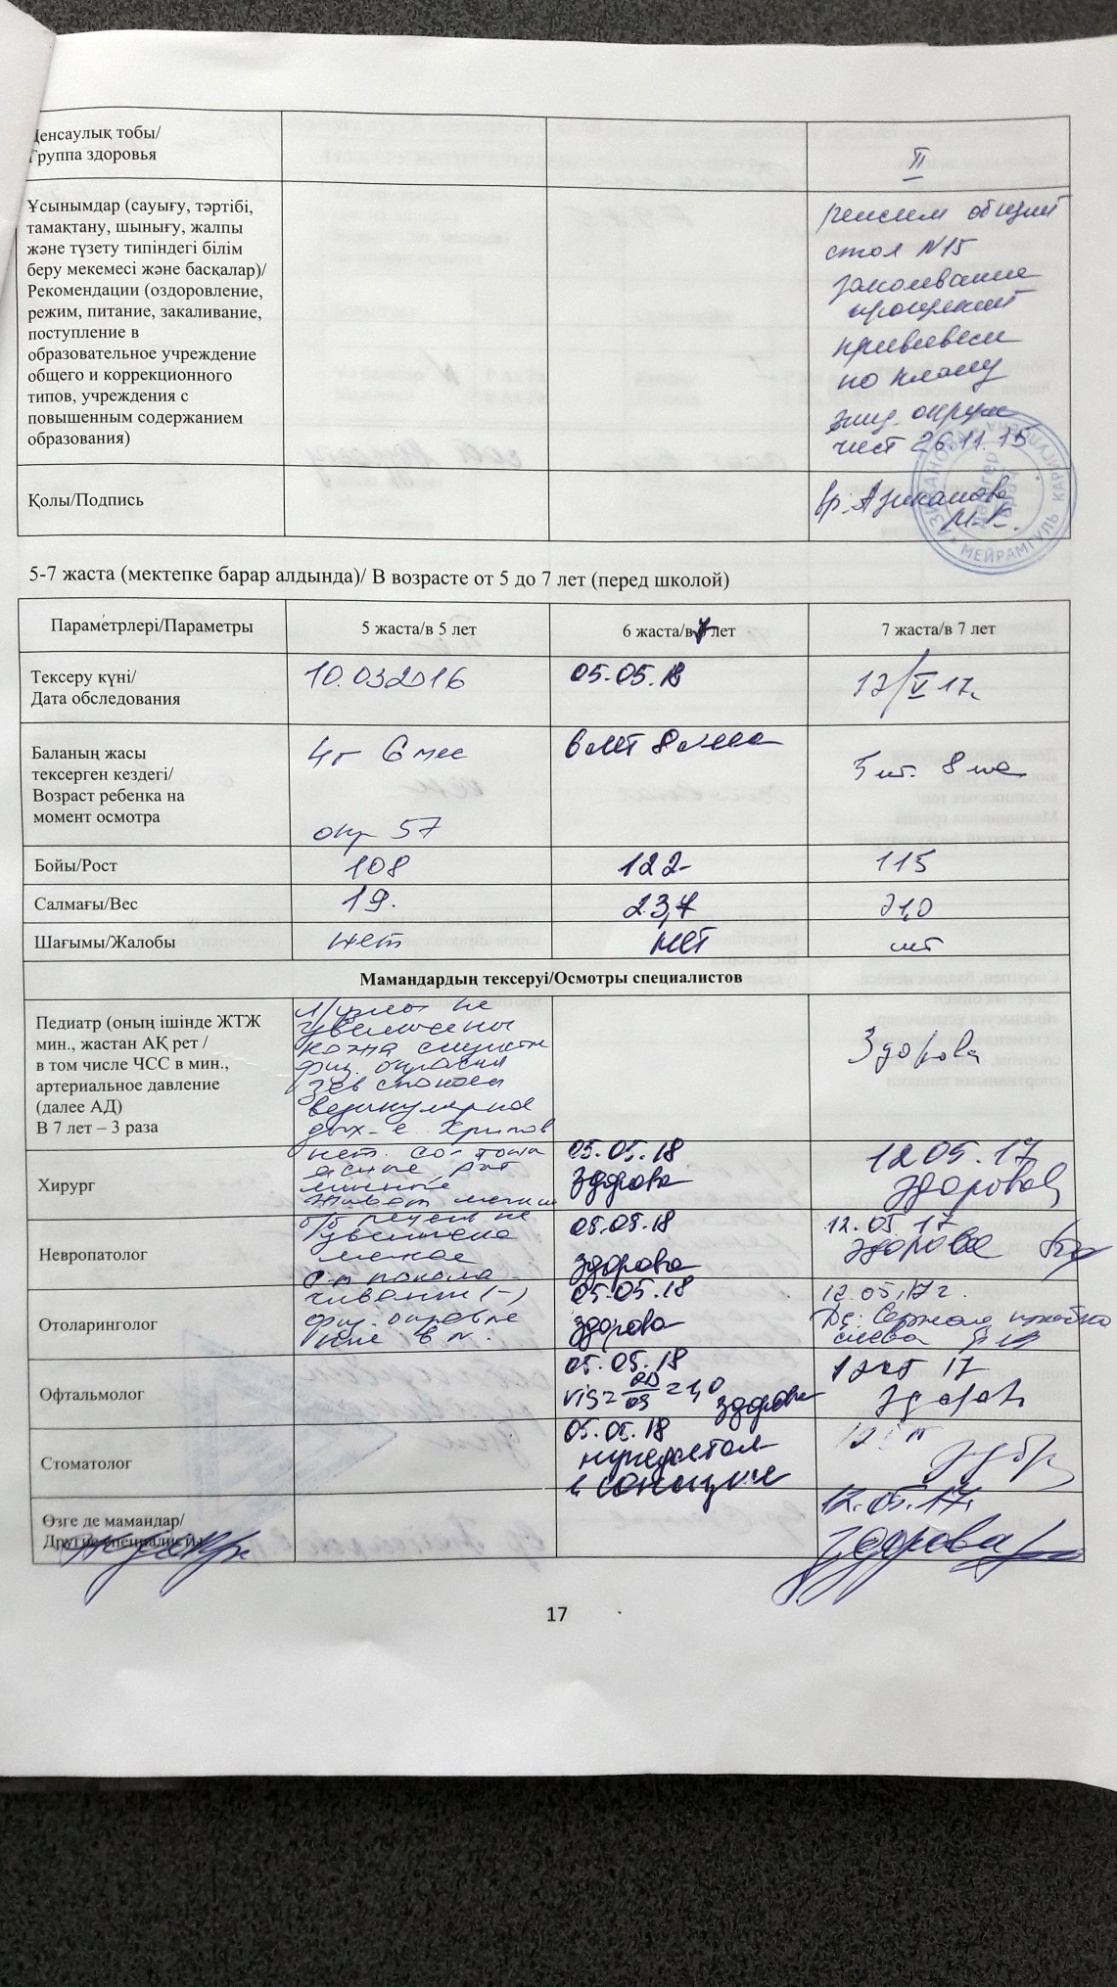 Денсаулық тобы/
Группа здоровья
II
Ұсынымдар (сауығу, тәртібі,
тамақтану, шынығу, жалпы
және түзету типіндегі білім
беру мекемесі және басқалар)/
Рекомендации (оздоровление,
режим, питание, закаливание,
поступление в
образовательное учреждение
общего и коррекционного
типов, учреждения с
повышенным содержанием
образования)
режим общий
стол N15
закаливание
прививки
по плану
эпид. окруж
чист 26.11.15
Қолы/Подпись
вр. Азиханова
М.К.
МЕЙРАМГУЛЬ
дәрігер
врач
5-7 жаста (мектепке барар алдында)/ В возрасте от 5 до 7 лет (перед школой)
Параметрлері/Параметры
5 жаста/в 5 лет
6 жаста/в 7 лет
7 жаста/в 7 лет
Тексеру күні/
Дата обследования
10.032016
05.05.18
12/V 17г.
Баланың жасы
тексерген кездегі/
Возраст ребенка на
момент осмотра
4г 6 мес
окр 57
6 лет 8 мес
5 лт. 8 ме
Бойы/Рост
108
122-
115
Салмағы/Вес
19.
23,7
21,0
Шағымы/Жалобы
нет
нет
нет
Мамандардың тексеруі/Осмотры специалистов
Педиатр (оның ішінде ЖТЖ
мин., жастан АҚ рет /
в том числе ЧСС в мин.,
артериальное давление
(далее АД)
В 7 лет – 3 раза
Л/узлы не
увеличены
кожа слизист
физ. окраски
зев спокоен
везикулярное
дых-е. Хрипов
нет. Сер тоны
ясные, рит
мичные
живот мягкий
б/б печень не
увеличена
чивания (-)
физ. отправле
ния в N.
Здорова
Хирург
05.05.18
здорова
12 05. 17
здорова
Невропатолог
05.05.18
здорова
12. 05 17
здорова
Отоларинголог
05.05.18
здорова
12.05.17г.
Ds: Серная пробка
слева
Офтальмолог
05.05.18
vis = OD/OS = 1,0 здорова
12 05 17
здорова
Стоматолог
05.05.18
нуждается
в санации
Өзге де мамандар/
Другие специалисты
12.05.17.
здорова
17